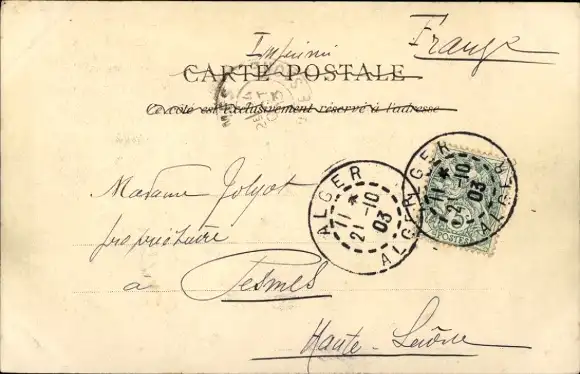 France
Imprimé
CARTE POSTALE
Ce côté est Exclusivement réservé à l'adresse
ALGER
11 * 21 -10 03
ALGER
ALGER
11 * 21 -10 03
ALGER
POSTES
Madame Jolyot
propriétaire
à Pesmes
Haute-Saône